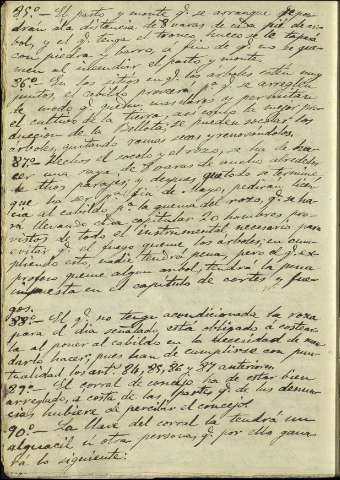 85º.- El pasto, y monte q.e se arranque se pon-
drán a la distancia de 8 varas de cada pié de ár-
bol, y el q.e tenga el tronco hueco se le tapará
con piedra y barro, a fin de q.e no se que-
men al incendiar el pasto y monte.
86º.- En los sitios en q.e los árboles estén muy
juntos, el cabildo proveerá p.a q.e se arreglen
de modo q.e puedan
el cultivo de la tierra, así como la mejor pro-
ducción de la bellota, se pueden socolar los
árboles, quitando ramas secas y renovándolos.
87º.- Hechos el socolo y el rozo, se ha de ha-
cer una raya de 8 varas de ancho alrededor
de dhos parajes, y después, q.e todo se termine,
que ha ser p.a fin de Mayo, pedirán licen-
cia al cabildo p.a la quema del rozo, q.e se ha-
rá llevando cada capitular 20 hombres pro-
vistos de todo el instrumental necesario para
evitar q.e el fuego queme los árboles; en cum-
pliendo esto, nadie tendrá pena, pero el q.e ex-
profeso queme algún arbol, tendrá la pena
impuesta en el capítulo de cortes y fue-
gos.
88º.- El q.e no tenga acondicionada la roza
para el día señalado, está obligado a costear-
la al poner al cabildo en la necesidad de man-
darlo hacer, pues han de cumplirse con pun-
tualidad los art.s 84, 85, 86 y 87 anteriores.
89º.- El corral de concejo ha de estar bien
arreglado, a costa de las partes q.e de las denun-
cias hubiere de percibir el concejo.
90º.- La llave del corral la tendrá un
alguacil u otra persona, q.e por ello gana-
rá lo siguiente: